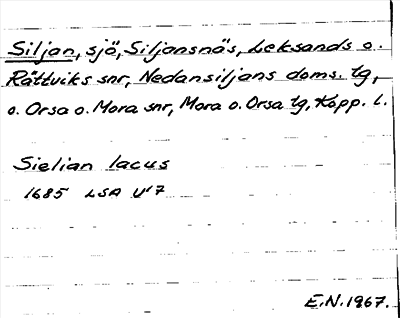 Siljan, sjö, Siljansnäs, Leksands o.
Rättviks snr, Nedansiljans doms. tg,
o. Orsa o. Mora snr, Mora o. Orsa tg, Kopp. l.
Sielian lacus
1685 LSA U17
E.N. 1967.